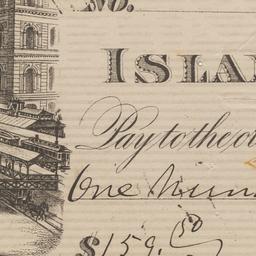 No.
ISLA
Pay to the o
One Hun
$159.50